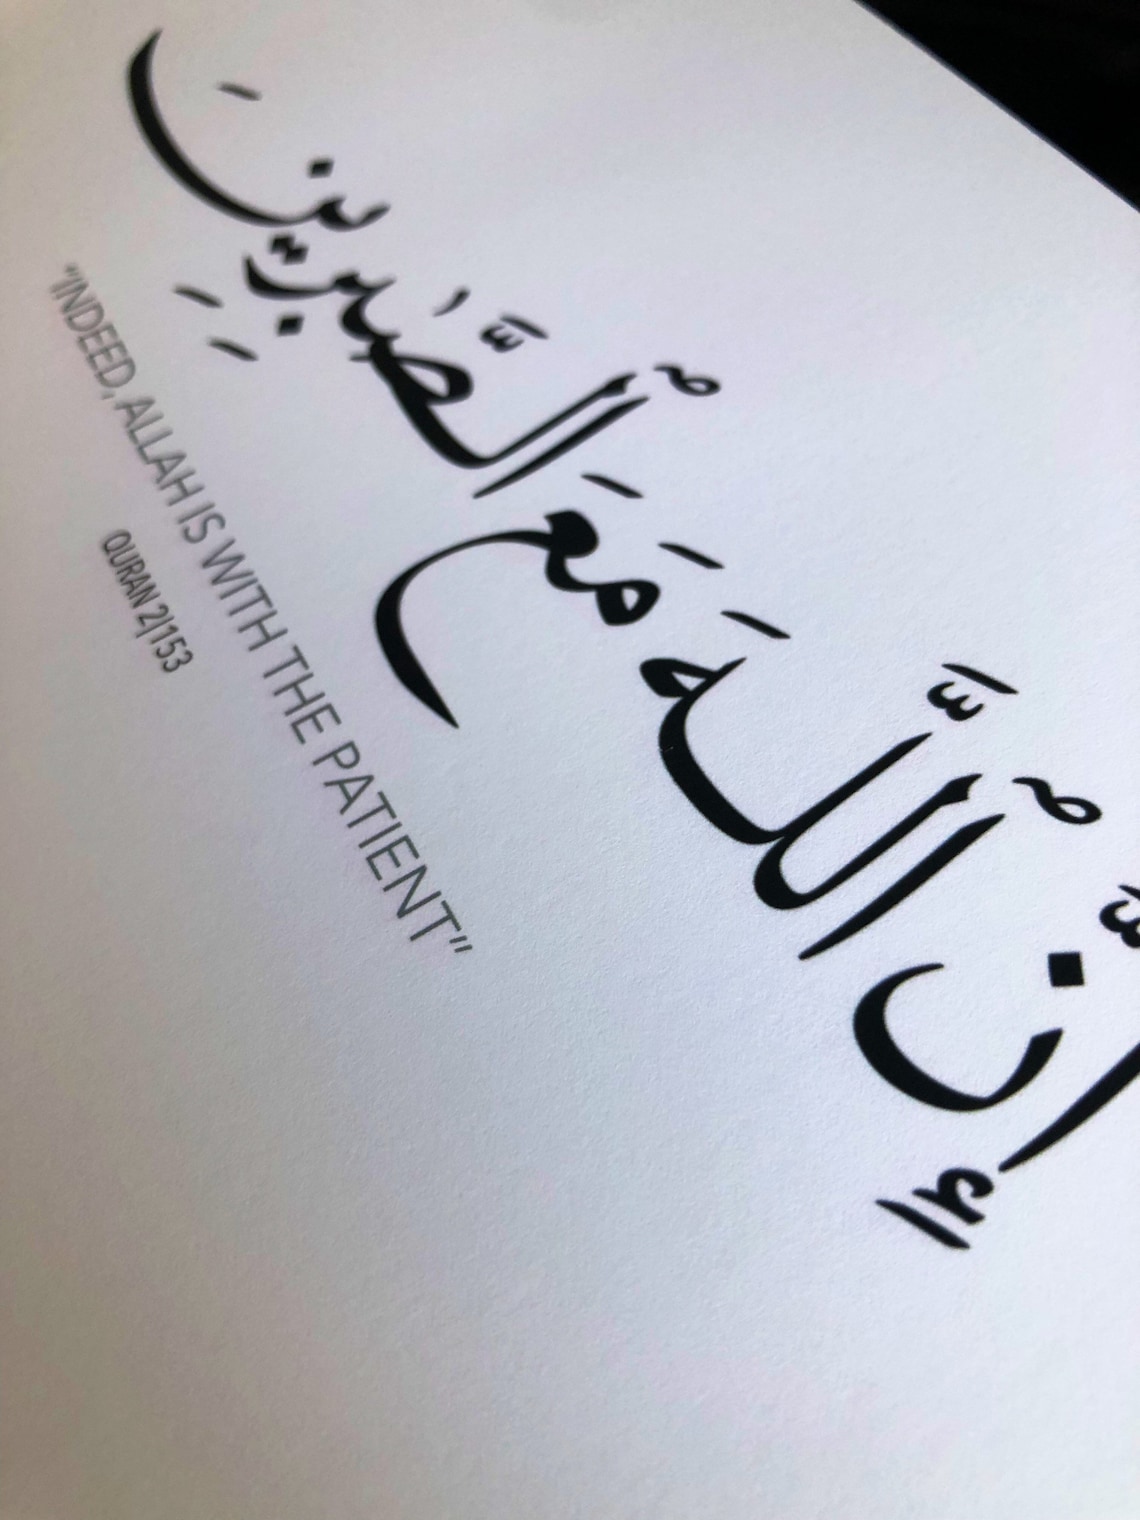 إِنَّ ٱللَّهَ مَعَ ٱلصَّٰبِرِينَ
“INDEED, ALLAH IS WITH THE PATIENT”
QURAN 2|153